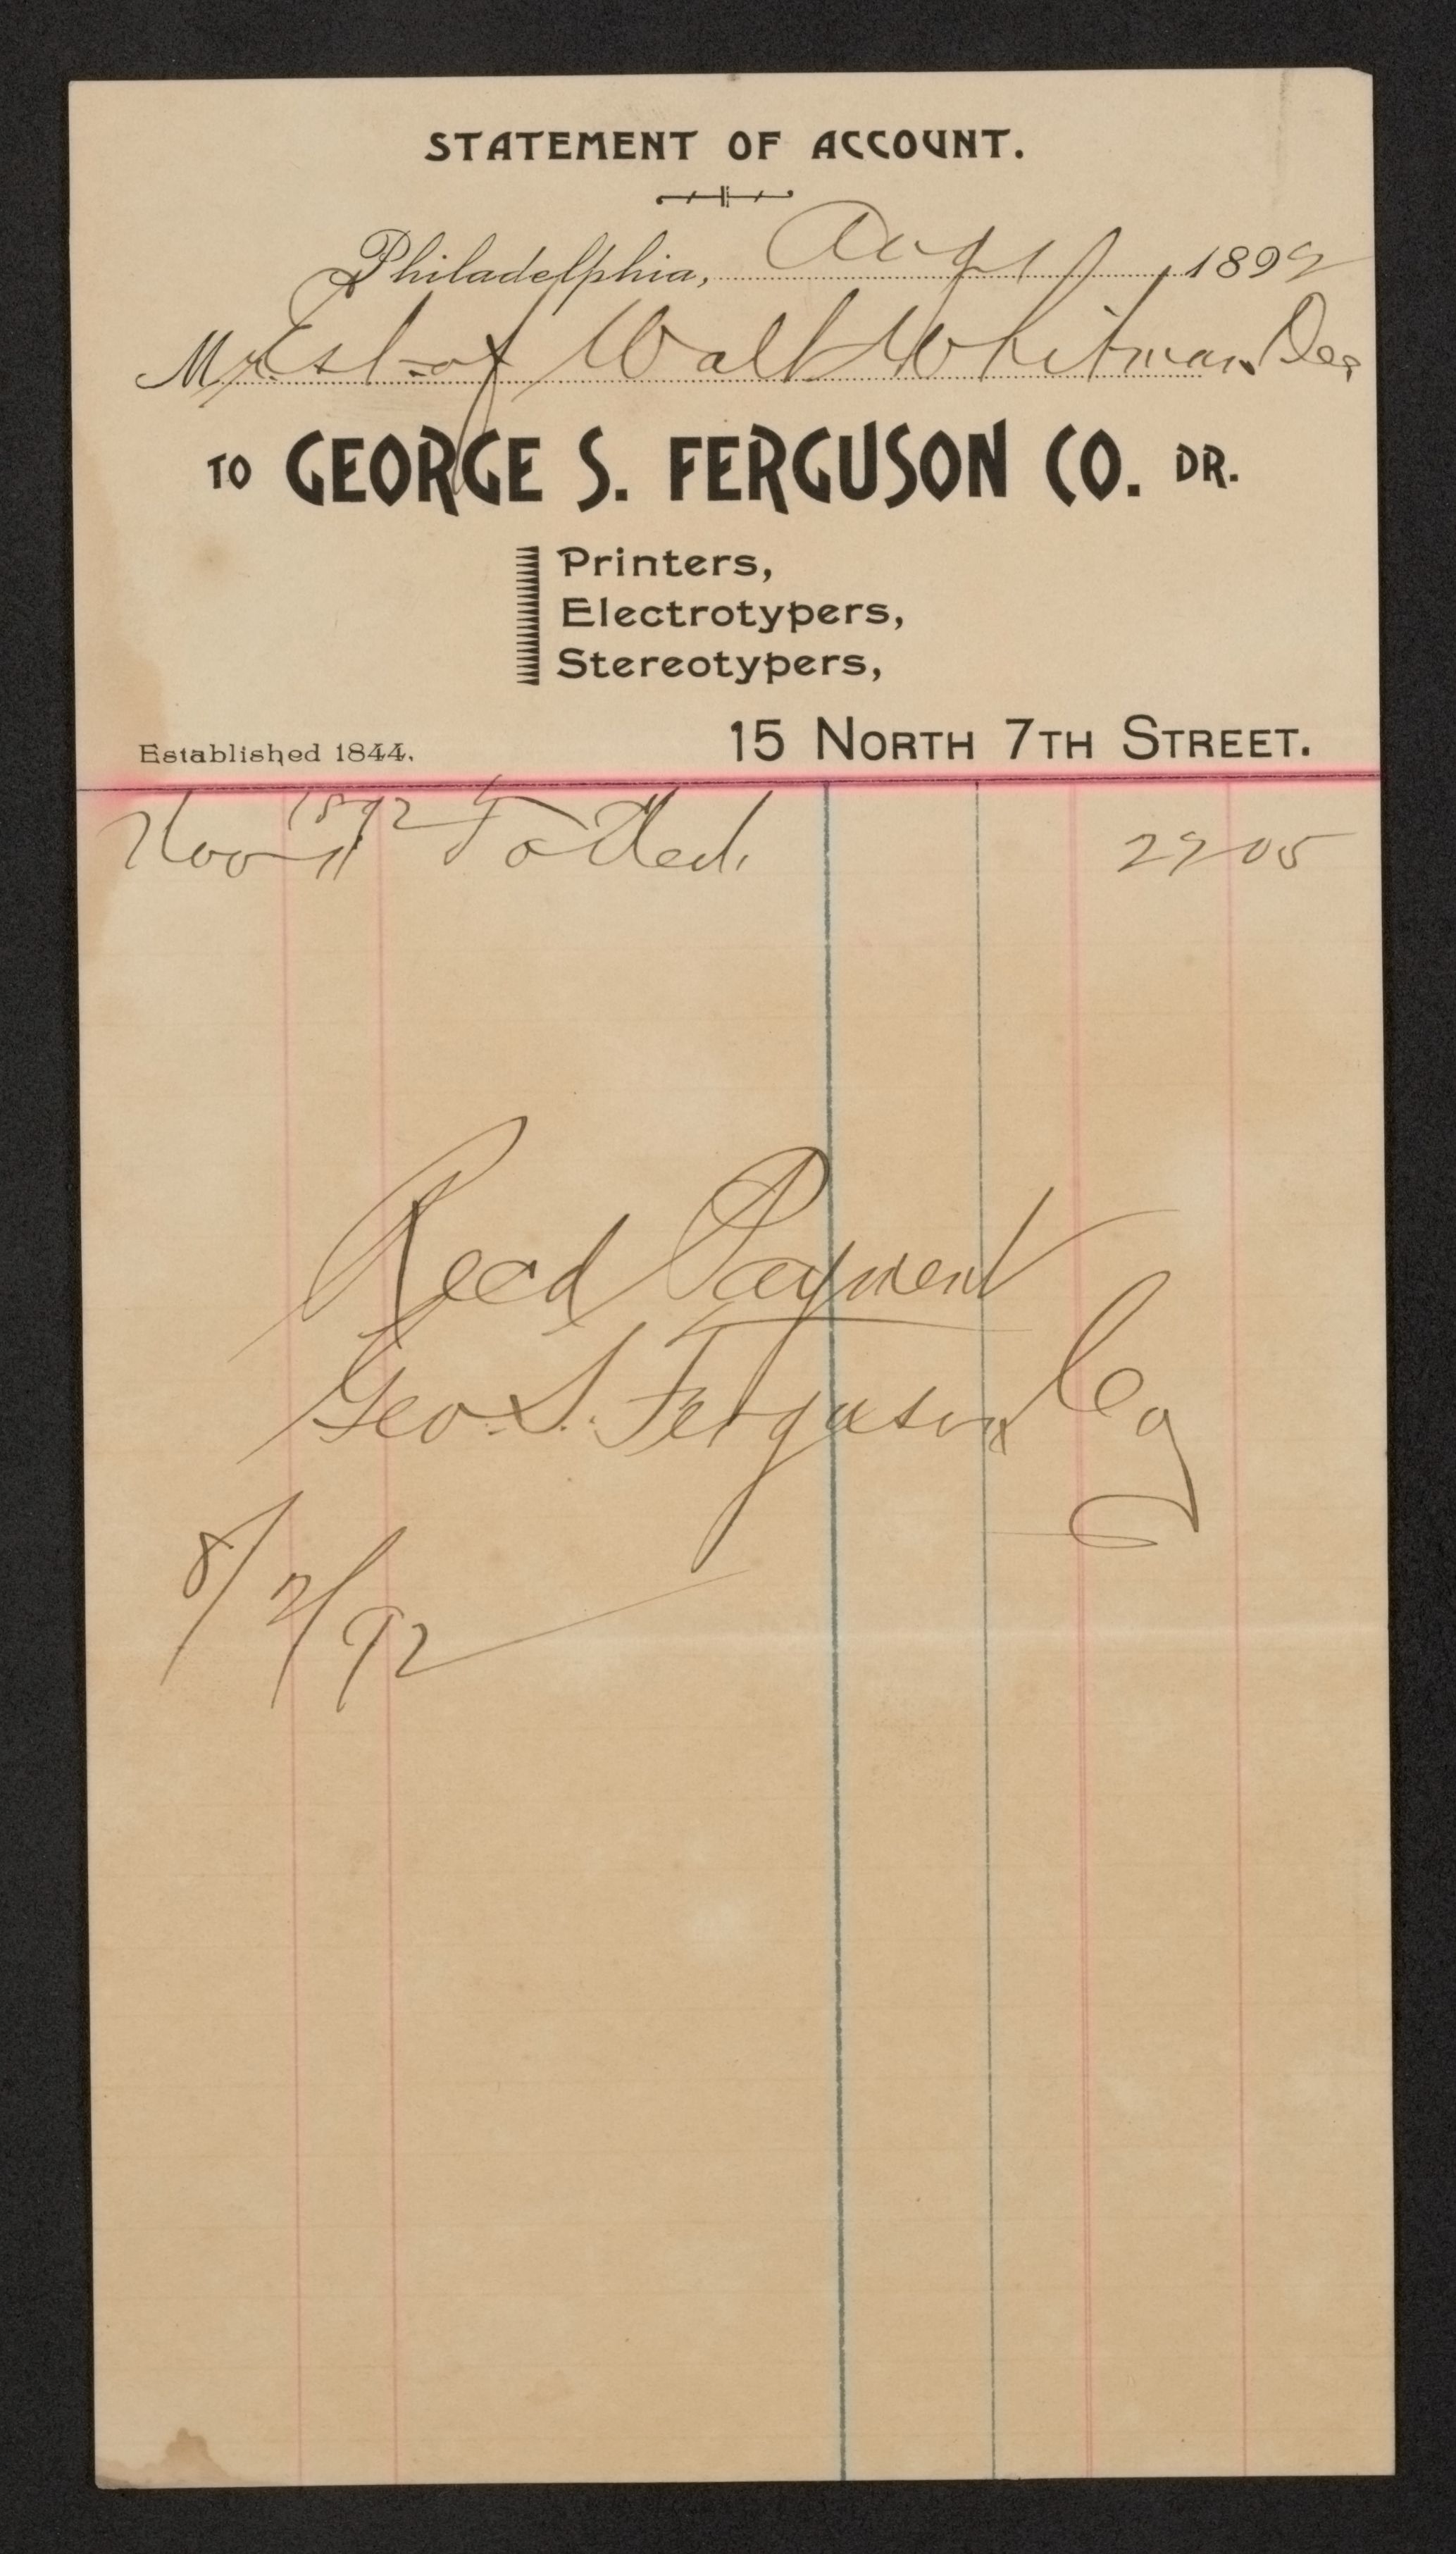 STATEMENT OF ACCOUNT.
Philadelphia, Aug 1 1892
Mr. Est. of Walt Whitman Dec
TO GEORGE S. FERGUSON CO. DR.
Printers,
Electrotypers,
Stereotypers,
Established 1844.
15 NORTH 7TH STREET.
1892
To
Recd Payment
Geo. S. Ferguson Co
8/2/92